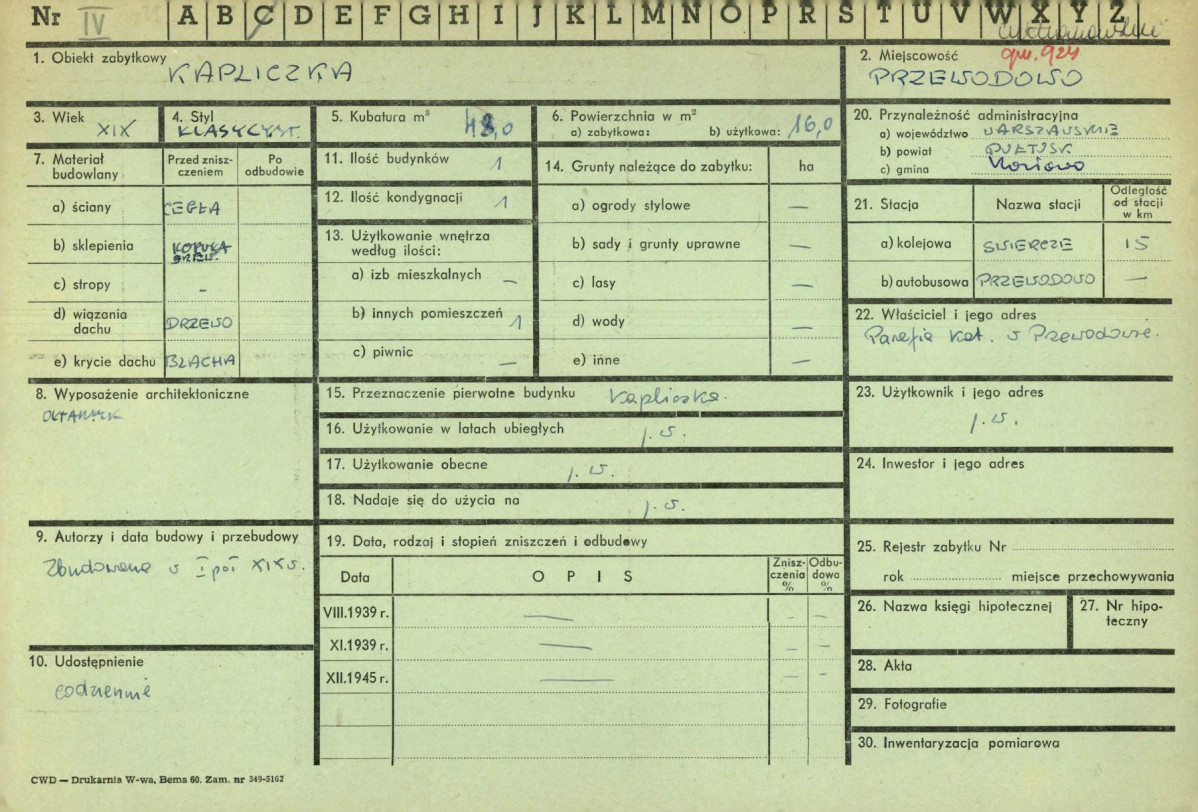 Nr IV A B C D E F G H I J K L M N O P R S T U V W X Y Z
ciechanowskie
gm. 924
1. Obiekt zabytkowy KAPLICZKA
2. Miejscowość PRZEWODOWO
3. Wiek XIX
4. Styl KLASYCYST.
5. Kubatura m³ 48,0
6. Powierzchnia w m²
a) zabytkowa: b) użytkowa: 16,0
7. Materiał budowlany
Przed zniszczeniem
Po odbudowie
a) ściany CEGŁA
b) sklepienia KOPUŁA DREW.
c) stropy -
d) wiązania dachu DRZEWO
e) krycie dachu BLACHA
8. Wyposażenie architektoniczne
OŁTARZYK
9. Autorzy i data budowy i przebudowy
Zbudowana w I poł XIX w.
10. Udostępnienie
codziennie
11. Ilość budynków 1
12. Ilość kondygnacji 1
13. Użytkowanie wnętrza według ilości:
a) izb mieszkalnych —
b) innych pomieszczeń 1
c) piwnic —
14. Grunty należące do zabytku: ha
a) ogrody stylowe —
b) sady i grunty uprawne —
c) lasy —
d) wody —
e) inne —
15. Przeznaczenie pierwotne budynku kapliczka.
16. Użytkowanie w latach ubiegłych j. w.
17. Użytkowanie obecne j. w.
18. Nadaje się do użycia na j. w.
19. Data, rodzaj i stopień zniszczeń i odbudowy
Data OPIS Zniszczenia % Odbudowa %
VIII.1939 r. — — —
XI.1939 r. — — —
XII.1945 r. — — —
20. Przynależność administracyjna
a) województwo WARSZAWSKIE
b) powiat PUŁTUSK
c) gmina
21. Stacja Nazwa stacji Odległość od stacji w km
a) kolejowa SWIERCZE 15
b) autobusowa PRZEWODOWO —
22. Właściciel i jego adres
Parafia kat. w Przewodowie.
23. Użytkownik i jego adres
j. w.
24. Inwestor i jego adres
25. Rejestr zabytku Nr
rok miejsce przechowywania
26. Nazwa księgi hipotecznej
27. Nr hipoteczny
28. Akta
29. Fotografie
30. Inwentaryzacja pomiarowa
CWD — Drukarnia W-wa, Bema 60. Zam. nr 349-5162